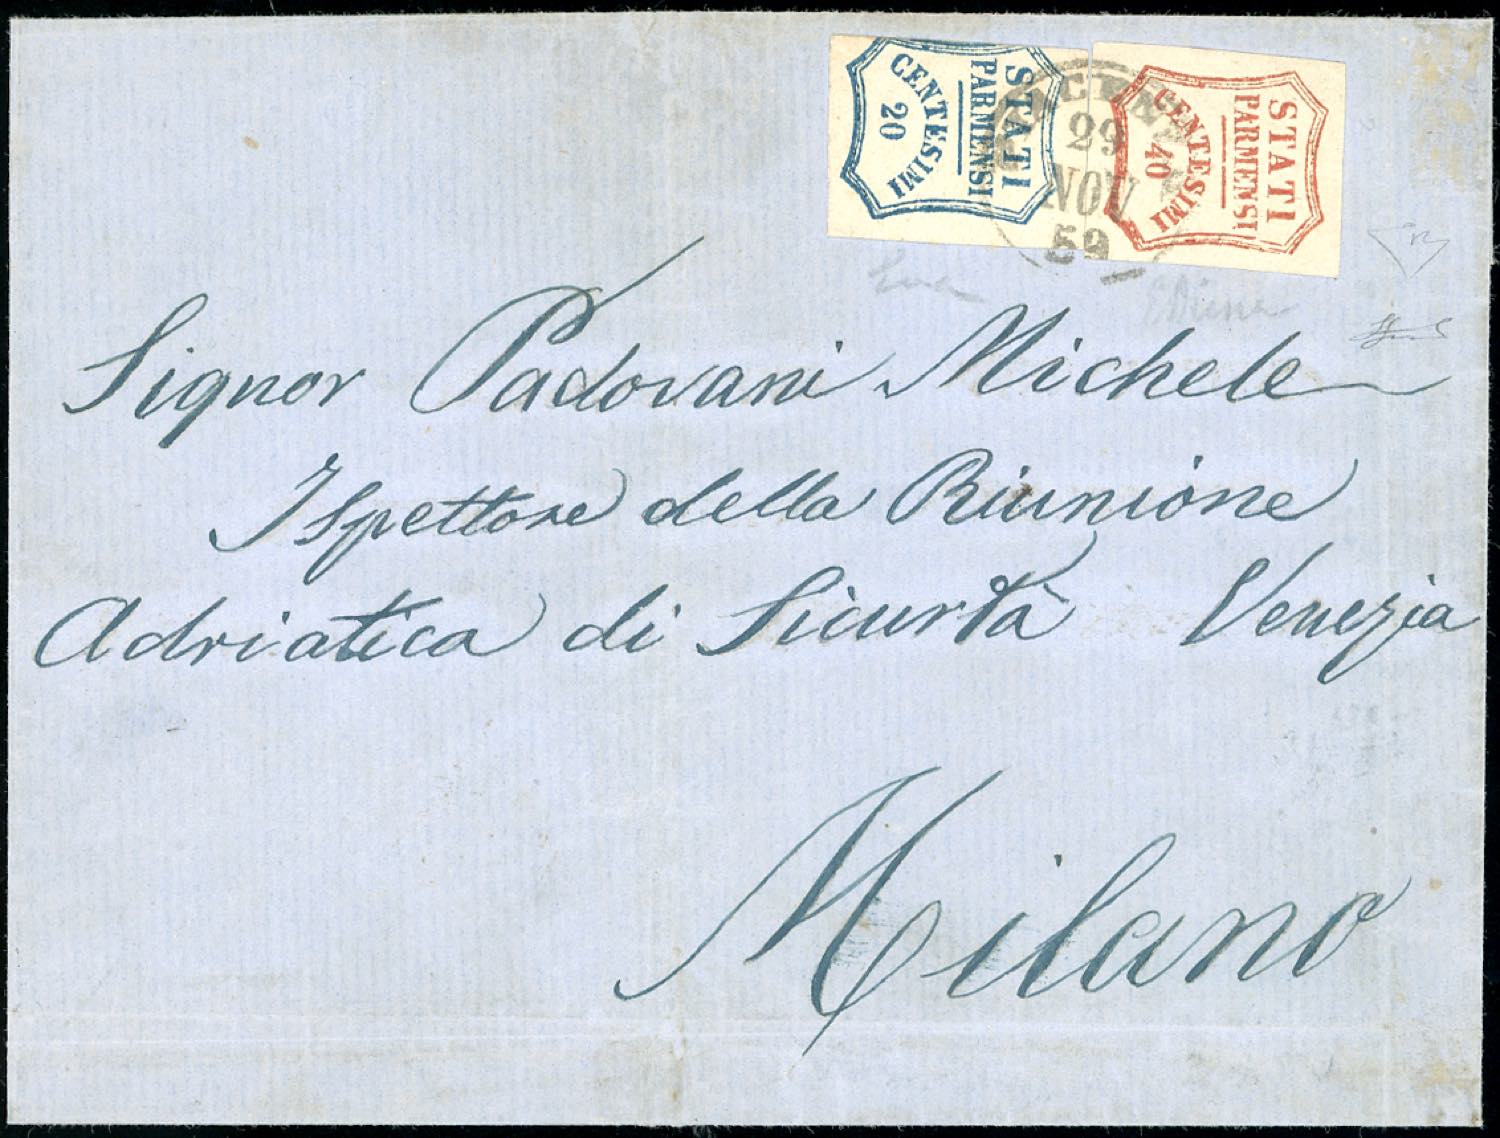 STATI
PARMENSI
CENTESIMI
20
STATI
PARMENSI
CENTESIMI
40
29
NOV
59
Signor Padovani Michele
Ispettore della Riunione
Adriatica di Sicurtà Venezia
Milano